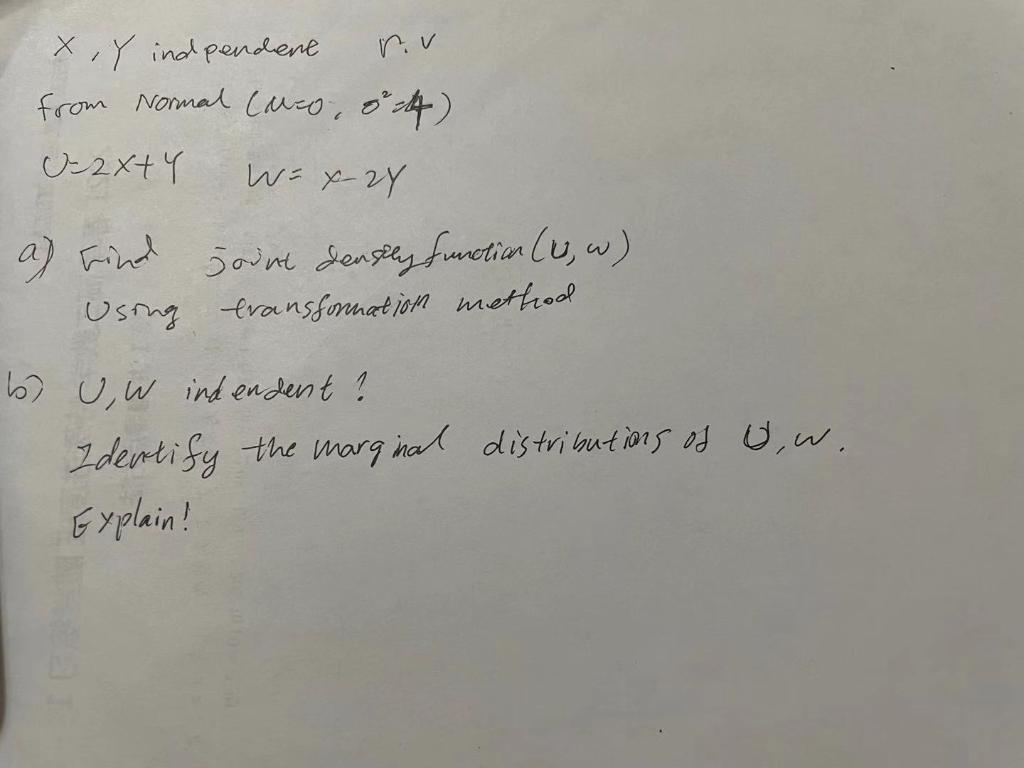 X, Y independent r.v
from Normal (μ=0, σ²=4)
U=2X+Y W= X-2Y
a) Find joint density function (U, W)
Using transformation method
b) U, W indendent ?
Identify the marginal distributions of U, W.
Explain!